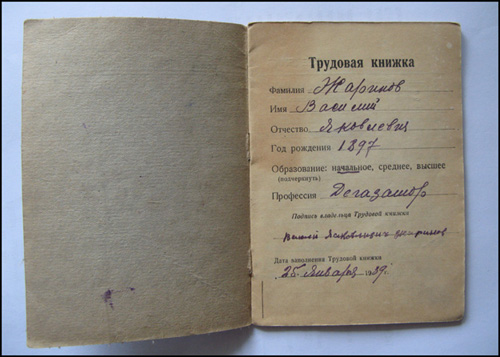 Трудовая книжка
Фамилия Жаринов
Имя Василий
Отчество Яковлевич
Год рождения 1897
Образование: начальное, среднее, высшее
(подчеркнуть)
Профессия Дегазатор
Подпись владельца Трудовой книжки
Яковлевич
Дата заполнения Трудовой книжки
25 Января 1939г